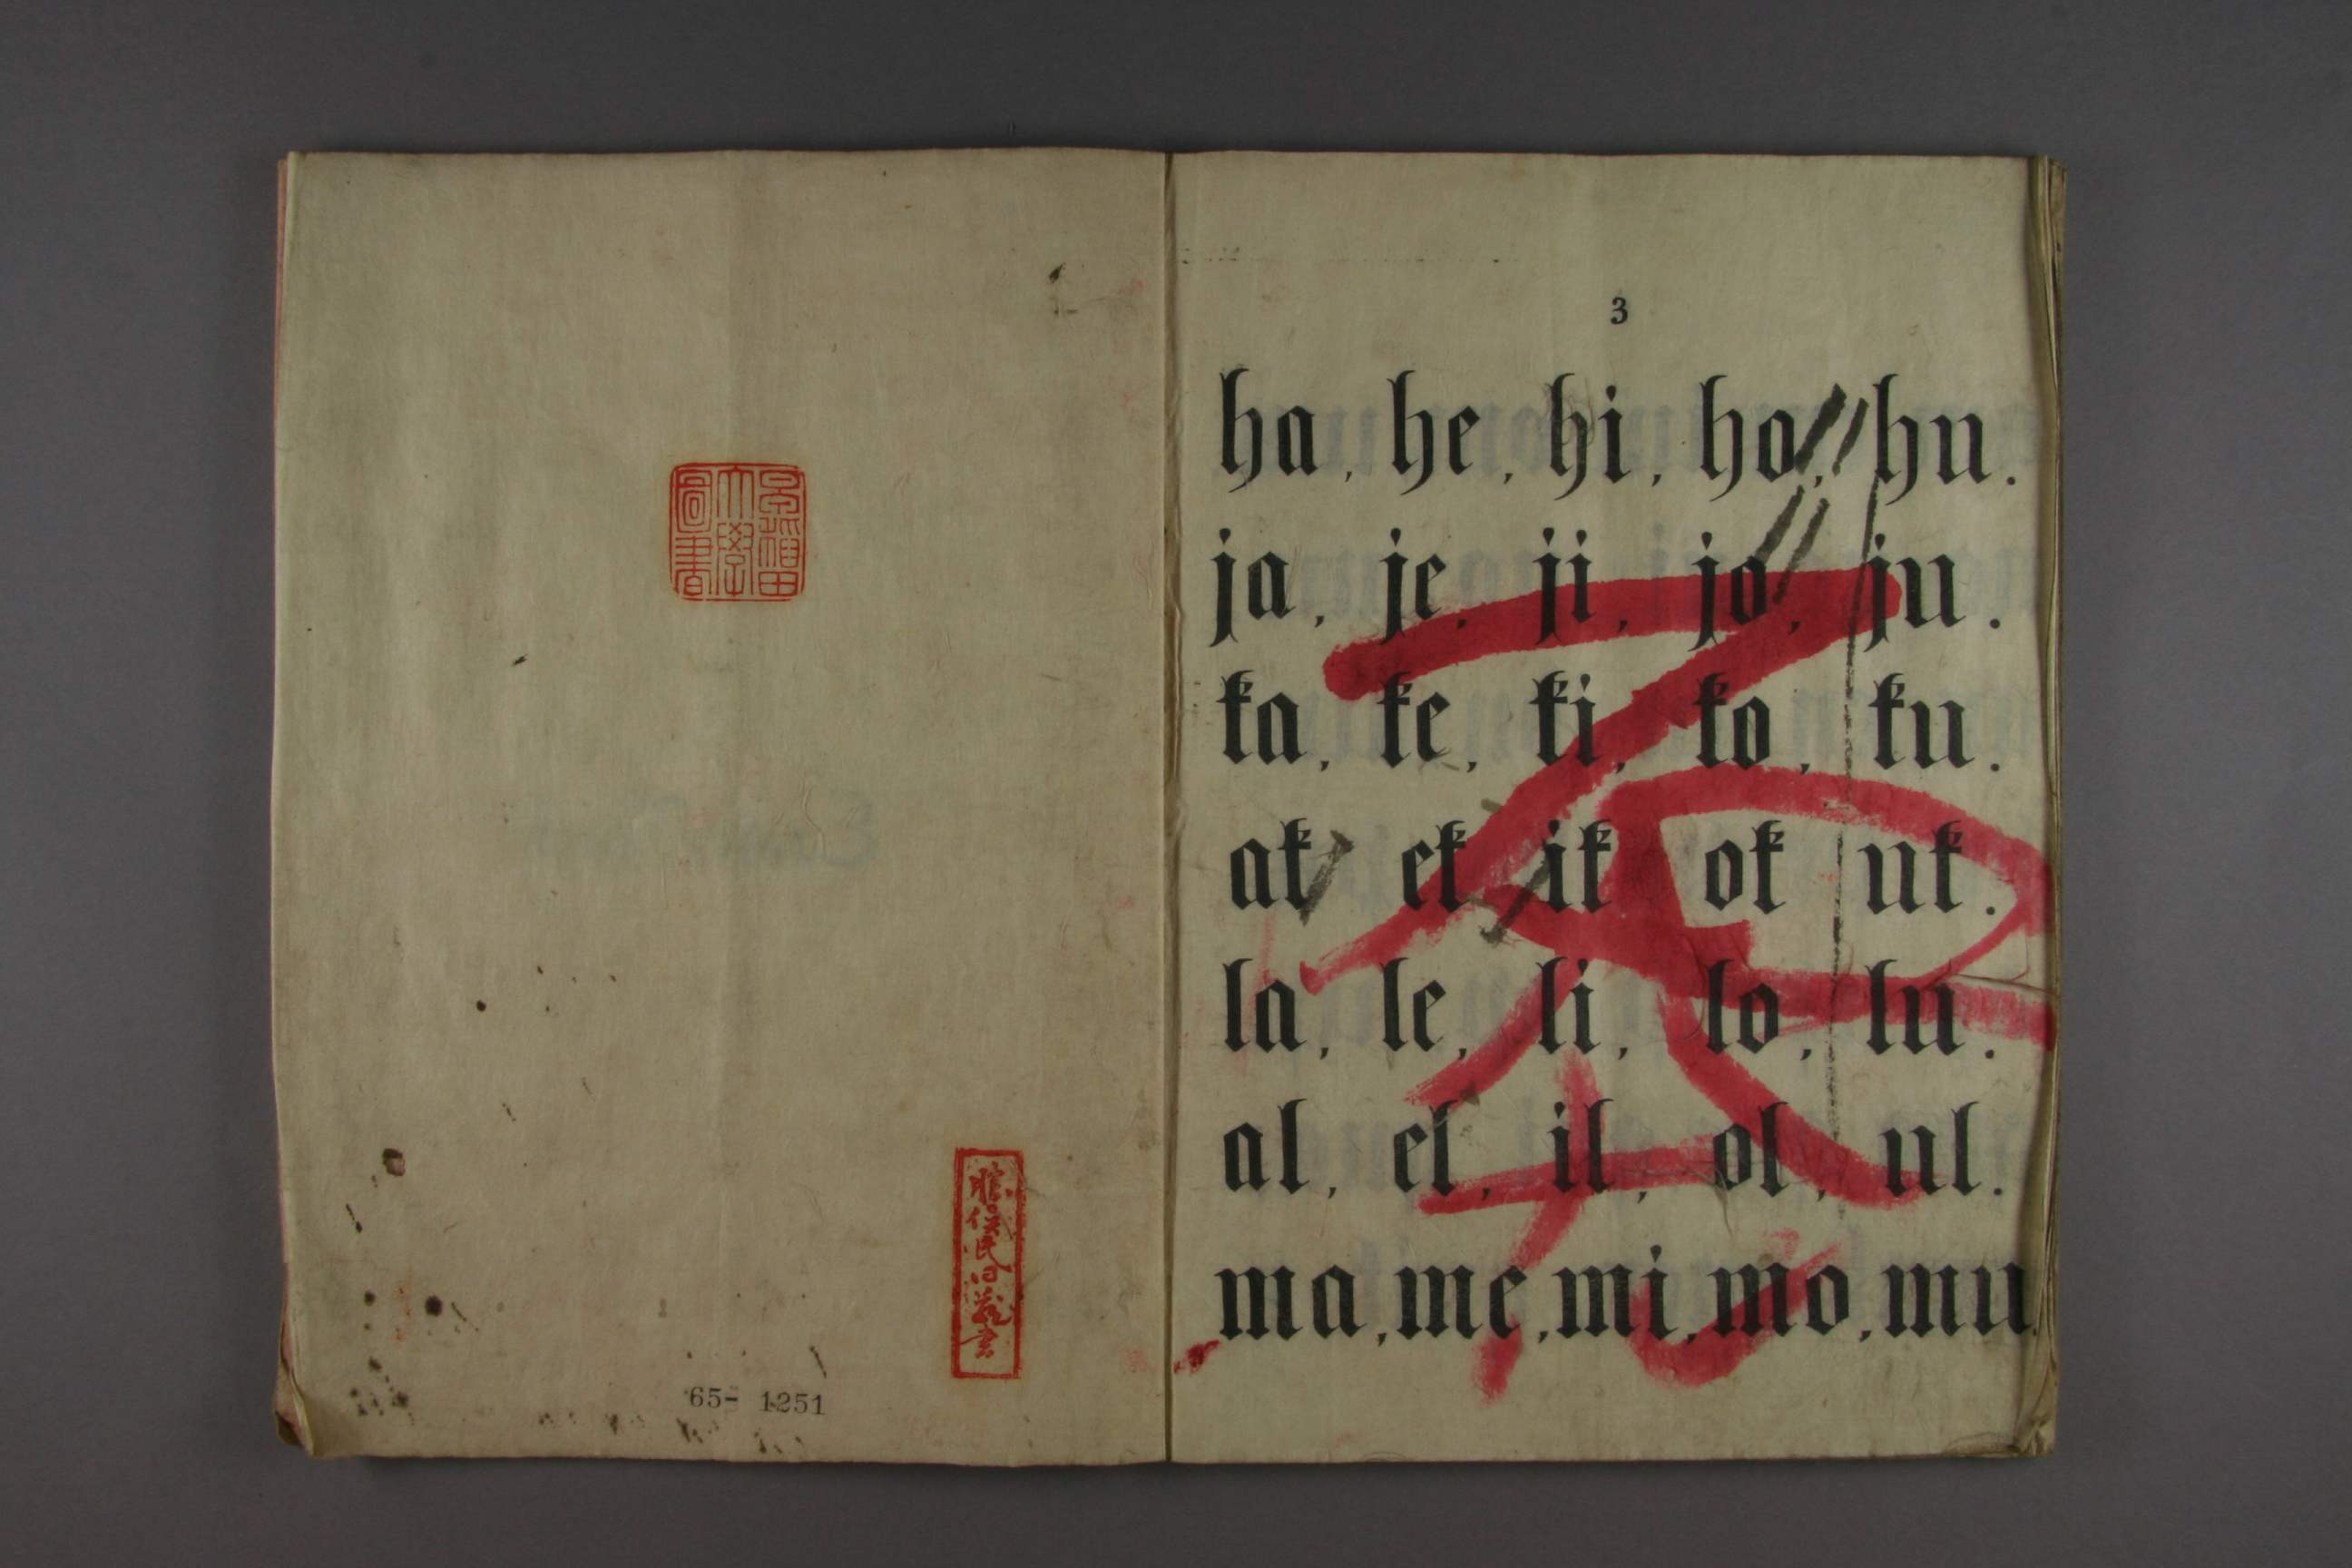 早稲田
大學
圖書
勝俣氏旧蔵書
65- 1251
3
ha, he, hi, ho, hu.
ja, je, ji, jo, ju.
ka, ke, ki, ko, ku.
ak ek ik ok uk.
la, le, li, lo, lu.
al, el, il, ol, ul.
ma, me, mi, mo, mu.